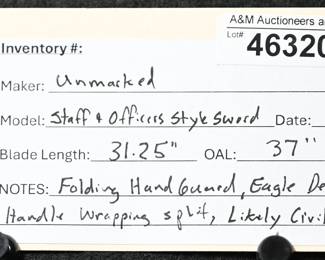 A&M Auctioneers a
Lot# 46320
Inventory #:
Maker: Unmarked
Model: Staff & Officers Style Sword Date:
Blade Length: 31.25" OAL: 37"
NOTES: Folding Hand Guard, Eagle De
Handle Wrapping split, Likely Civil